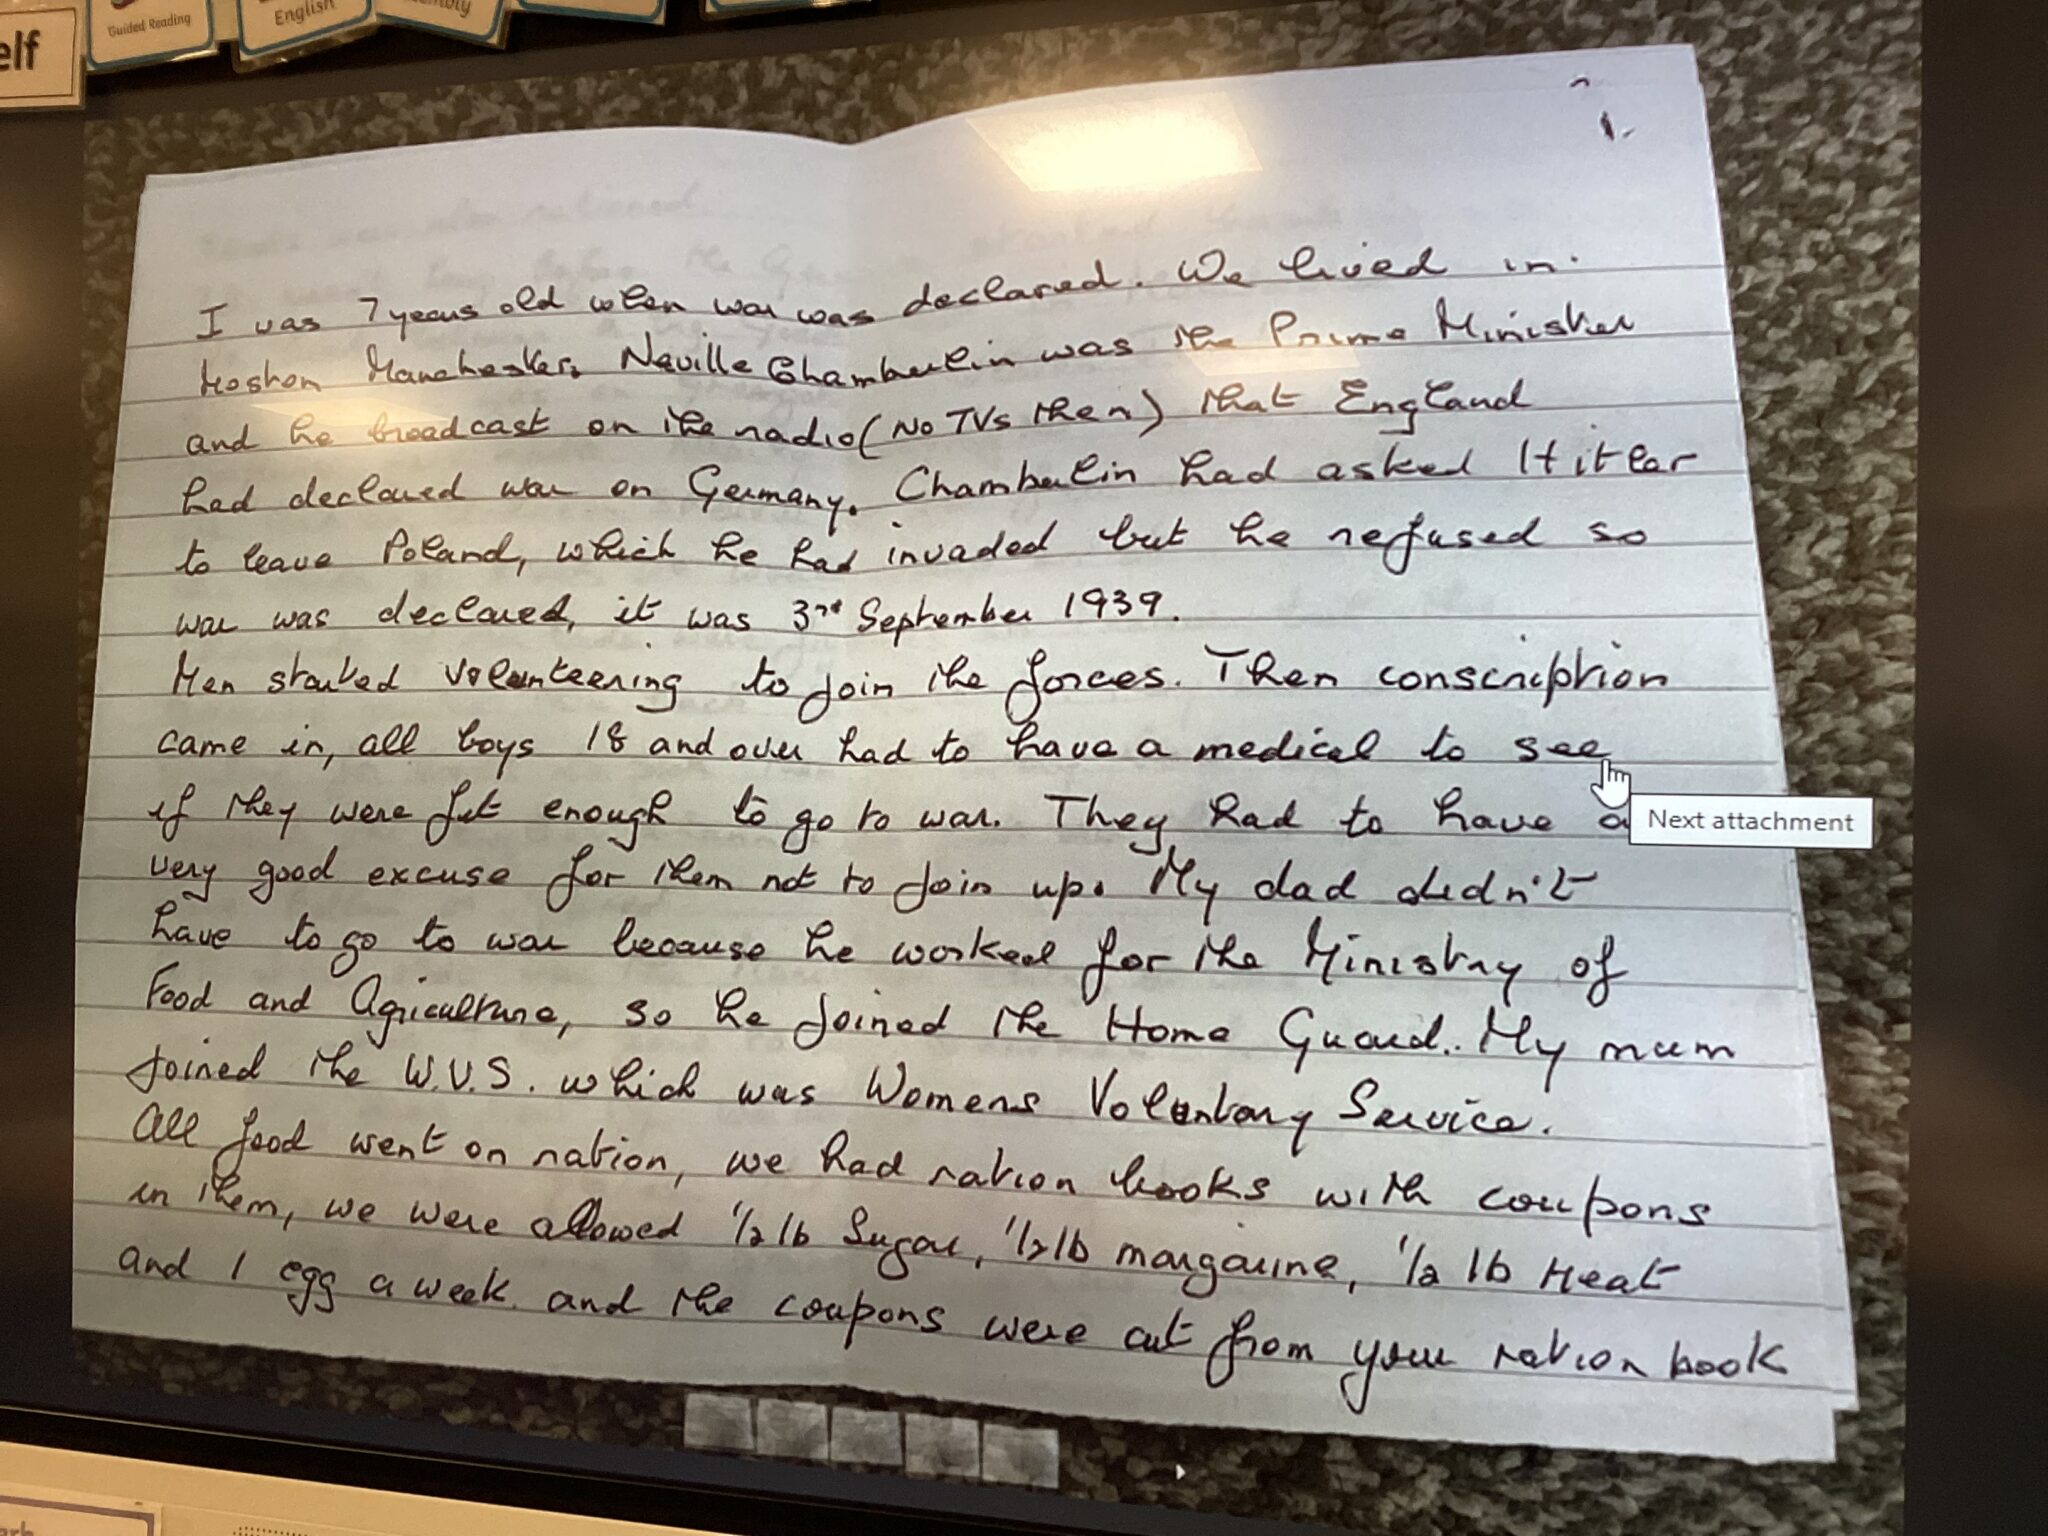 elf
Guided Reading
English
1.
I was 7 years old when war was declared. We lived in
Moston Manchester. Neville Chamberlin was the Prime Minister
and he broadcast on the radio (No TVs then) that England
had declared war on Germany. Chamberlin had asked Hitler
to leave Poland, which he had invaded but he refused so
war was declared, it was 3rd September 1939.
Men started volunteering to join the forces. Then conscription
came in, all boys 18 and over had to have a medical to see
if they were fit enough to go to war. They had to have a
Next attachment
very good excuse for them not to join up. My dad didn't
have to go to war because he worked for the Ministry of
Food and Agriculture, so he joined the Home Guard. My mum
joined the W.V.S. which was Womens Voluntary Service.
All food went on ration, we had ration books with coupons
in them, we were allowed 1/2 lb Sugar, 1/2 lb margarine, 1/2 lb Meat
and 1 egg a week and the coupons were cut from your ration book